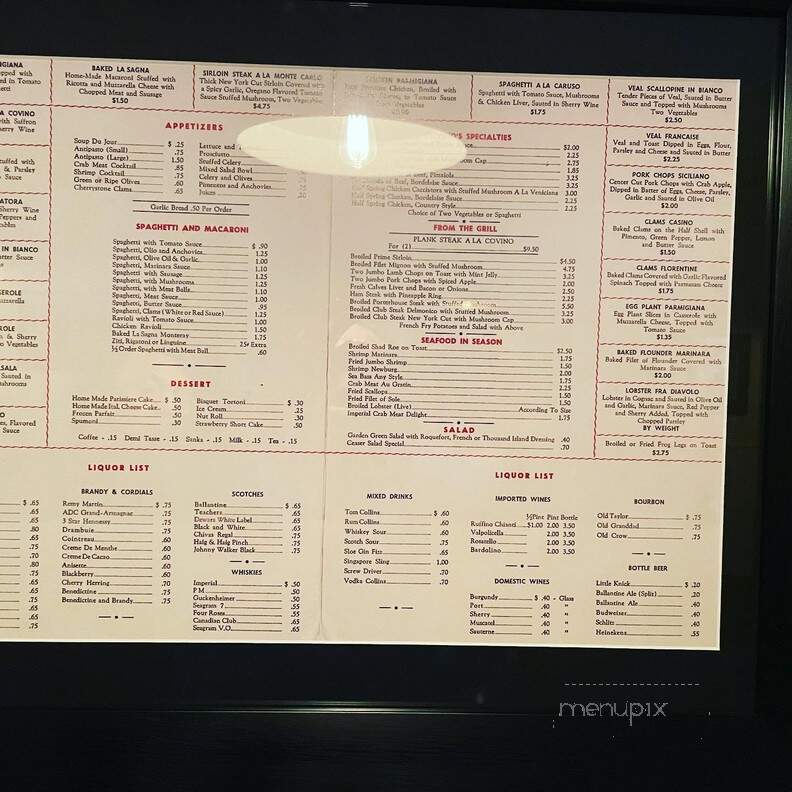 IGIANA
pped with
ed in Tomato
etti
A COVINO
with Saffron
erry Wine
tuffed with
& Parsley
Sauce
ATORA
Sherry Wine
Peppers and
tables
IN BIANCO
utter Sauce
s
SEROLE
uzzarella
ROLE
& Sherry
Vegetables
SALA
Sauted in
ushrooms
O
es, Flavored
Sauce
BAKED LASAGNA
Home-Made Macaroni Stuffed with
Ricotta and Muttzarella Cheese with
Chopped Meat and Sausage
$1.50
SIRLOIN STEAK A LA MONTE CARLO
Thick New York Cut Sirloin Covered with
a Spicy Garlic, Oregano Flavored Tomato
Sauce Stuffed Mushroom, Two Vegetables
$4.75
PARMIGIANA
Chicken, Broiled with
Cheese, in Tomato Sauce
Vegetables
SPAGHETTI A LA CARUSO
Spaghetti with Tomato Sauce, Mushrooms
& Chicken Liver, Sauted in Sherry Wine
$1.75
VEAL SCALLOPINE IN BIANCO
Tender Pieces of Veal, Sauted in Butter
Sauce and Topped with Mushrooms
Two Vegetables
$2.50
VEAL FRANCAISE
Veal and Toast Dipped in Eggs, Flour,
Parsley and Cheese and Sauted in Butter
$2.25
PORK CHOPS SICILIANO
Center Cut Pork Chops with Crab Apple,
Dipped in Butter of Eggs, Cheese, Parsley,
Garlic and Sauted in Olive Oil
$2.00
CLAMS CASINO
Baked Clams on the Half Shell with
Pimento, Green Pepper, Lemon
and Butter Sauce
$1.50
CLAMS FLORENTINE
Baked Clams Covered with Garlic Flavored
Spinach Topped with Parmesan Cheese
$1.75
EGG PLANT PARMIGIANA
Egg Plant Slices in Casserole with
Muzzarella Cheese, Topped with
Tomato Sauce
$1.35
BAKED FLOUNDER MARINARA
Baked Filet of Flounder Covered with
Marinara Sauce
$2.00
LOBSTER FRA DIAVOLO
Lobster in Cognac and Sauted in Olive Oil
and Garlic, Marinara Sauce, Red Pepper
and Sherry Added, Topped with
Chopped Parsley
BY WEIGHT
Broiled or Fried Frog Legs on Toast
$2.75
APPETIZERS
Soup Du Jour $ .25
Antipasto (Small) .75
Antipasto (Large) 1.50
Crab Meat Cocktail .85
Shrimp Cocktail .75
Green or Ripe Olives .60
Cherrystone Clams .65
Lettuce and
Prosciutto
Stuffed Celery
Mixed Salad Bowl
Celery and Olives
Pimentos and Anchovies
Juices
Garlic Bread .50 Per Order
SPAGHETTI AND MACARONI
Spaghetti with Tomato Sauce $ .90
Spaghetti, Olio and Anchovies 1.25
Spaghetti, Olive Oil & Garlic 1.00
Spaghetti, Marinara Sauce 1.10
Spaghetti with Sausage 1.25
Spaghetti, with Mushrooms 1.25
Spaghetti, with Meat Balls 1.10
Spaghetti, Meat Sauce 1.00
Spaghetti, Butter Sauce .95
Spaghetti, Clams (White or Red Sauce) 1.25
Ravioli with Tomato Sauce 1.00
Chicken Ravioli 1.50
Baked La Sagna Monteray 1.75
Ziti, Rigatoni or Linguine 25¢ Extra
½ Order Spaghetti with Meat Ball .60
DESSERT
Home Made Patisiere Cake $ .50
Home Made Ital. Cheese Cake .50
Frozen Parfait .50
Spumoni .30
Bisquet Tortoni $ .30
Ice Cream .25
Nut Roll .30
Strawberry Short Cake .50
Coffee - .15 Demi Tasse - .15 Sanka - .15 Milk - .15 Tea - .15
'S SPECIALTIES
$2.00
2.25
Cup 2.75
1.85
Beef, Pizziola 3.25
of Beef, Bordelaise Sauce 3.25
Spring Chicken Cacciatora with Stuffed Mushroom A La Veniciana 3.00
Half Spring Chicken, Bordelaise Sauce 2.25
Half Spring Chicken, Country Style 2.25
Choice of Two Vegetables or Spaghetti
FROM THE GRILL
PLANK STEAK A LA COVINO
For (2) $9.50
Broiled Prime Sirloin $4.50
Broiled Filet Mignon with Stuffed Mushroom 4.75
Two Jumbo Lamb Chops on Toast with Mint Jelly 3.25
Two Jumbo Pork Chops with Spiced Apple 2.00
Fresh Calves Liver and Bacon or Onions 2.50
Ham Steak with Pineapple Ring 2.25
Broiled Porterhouse Steak with Stuffed Mushroom 5.50
Broiled Club Steak Delmonico with Stuffed Mushroom 3.25
Broiled Club Steak New York Cut with Mushroom Cap 3.00
French Fry Potatoes and Salad with Above
SEAFOOD IN SEASON
Broiled Shad Roe on Toast $2.50
Shrimp Marinara 1.75
Fried Jumbo Shrimp 1.50
Shrimp Newburg 1.50
Sea Bass Any Style 2.00
Crab Meat Au Gratin 1.75
Fried Scallops 2.25
Fried Filet of Sole 1.50
Broiled Lobster (Live) According To Size
Imperial Crab Meat Delight 1.75
SALAD
Garden Green Salad with Roquefort, French or Thousand Island Dressing .40
Ceaser Salad Special .70
LIQUOR LIST
$ .65
.65
.65
.80
.65
.60
.70
.80
.60
.65
.65
.65
.75
BRANDY & CORDIALS
Remy Martin $ .75
ADC Grand-Armagnac .75
3 Star Hennessy .75
Drambuie .75
Cointreau .60
Creme De Menthe .60
Creme De Cacao .60
Anisette .60
Blackberry .60
Cherry Herring .70
Benedictine .75
Benedictine and Brandy .75
SCOTCHES
Ballantine $ .65
Teachers .65
Dewars White Label .65
Black and White .65
Chivas Regal .75
Haig & Haig Pinch .75
Johnny Walker Black .75
WHISKIES
Imperial $ .50
P M .50
Guckenheimer .50
Seagram 7 .55
Four Roses .55
Canadian Club .65
Seagram V.O. .65
LIQUOR LIST
MIXED DRINKS
Tom Collins $ .60
Rum Collins .60
Whiskey Sour .60
Scotch Sour .75
Sloe Gin Fizz .65
Singapore Sling 1.00
Screw Driver .70
Vodka Collins .70
IMPORTED WINES
½Pint Pint Bottle
Ruffino Chianti $1.00 2.00 3.50
Valpolicella 2.00 3.50
Rosatello 2.00 3.50
Bardolino 2.00 3.50
DOMESTIC WINES
Burgundy $ .40 - Glass
Port .40 "
Sherry .40 "
Muscatel .40 "
Sauterne .40 "
BOURBON
Old Taylor $ .75
Old Granddad .75
Old Crow .75
BOTTLE BEER
Little Knick $ .20
Ballantine Ale (Split) .20
Ballantine Ale .40
Budweiser .40
Schlitz .40
Heinekens .55
menupix